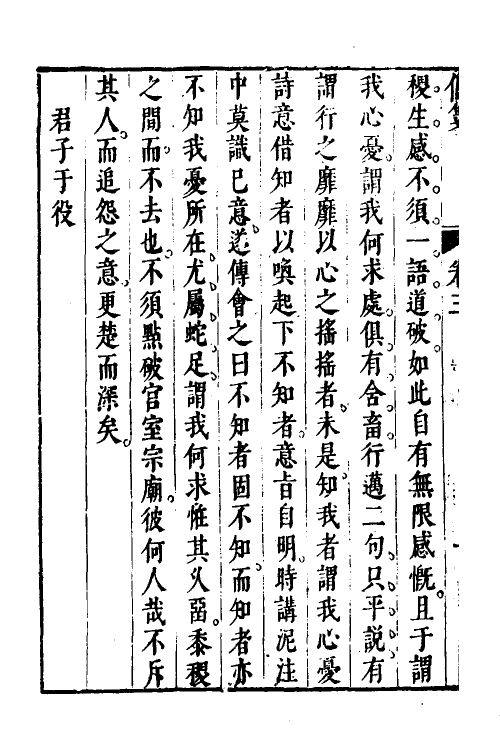 稷生感不須一語道破如此自有無限感慨且于謂
我心憂謂我何求處俱有含畜行邁二句只平說有
謂行之靡靡以心之搖搖者未是知我者謂我心憂
詩意借知者以喚起下不知者意旨自明時講泥注
中莫識已意遂傳會之曰不知者固不知而知者亦
不知我憂所在尤屬蛇足謂我何求惟其久畱黍稷
之間而不去也不須點破宮室宗廟彼何人哉不斥
其人而追怨之意更楚而深矣
君子于役
卷三